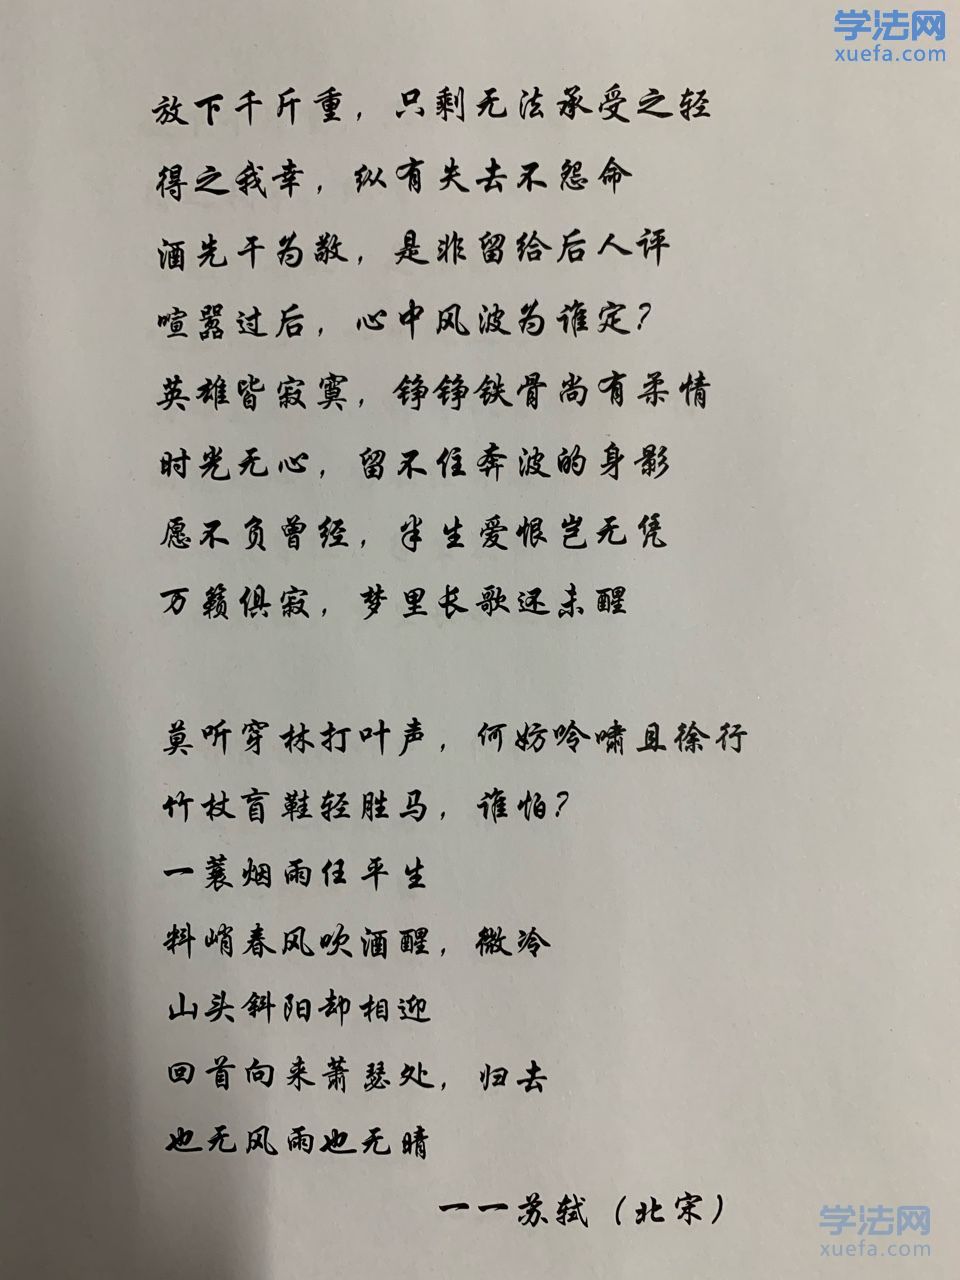 学法网
xuefa.com
放下千斤重，只剩无法承受之轻
得之我幸，纵有失去不怨命
酒先干为敬，是非留给后人评
喧嚣过后，心中风波为谁定？
英雄皆寂寞，铮铮铁骨尚有柔情
时光无心，留不住奔波的身影
愿不负曾经，半生爱恨岂无凭
万籁俱寂，梦里长歌还未醒
莫听穿林打叶声，何妨呤啸且徐行
竹杖盲鞋轻胜马，谁怕？
一蓑烟雨任平生
料峭春风吹酒醒，微冷
山头斜阳却相迎
回首向来萧瑟处，归去
也无风雨也无晴
一一苏轼（北宋）
学法网
xuefa.com